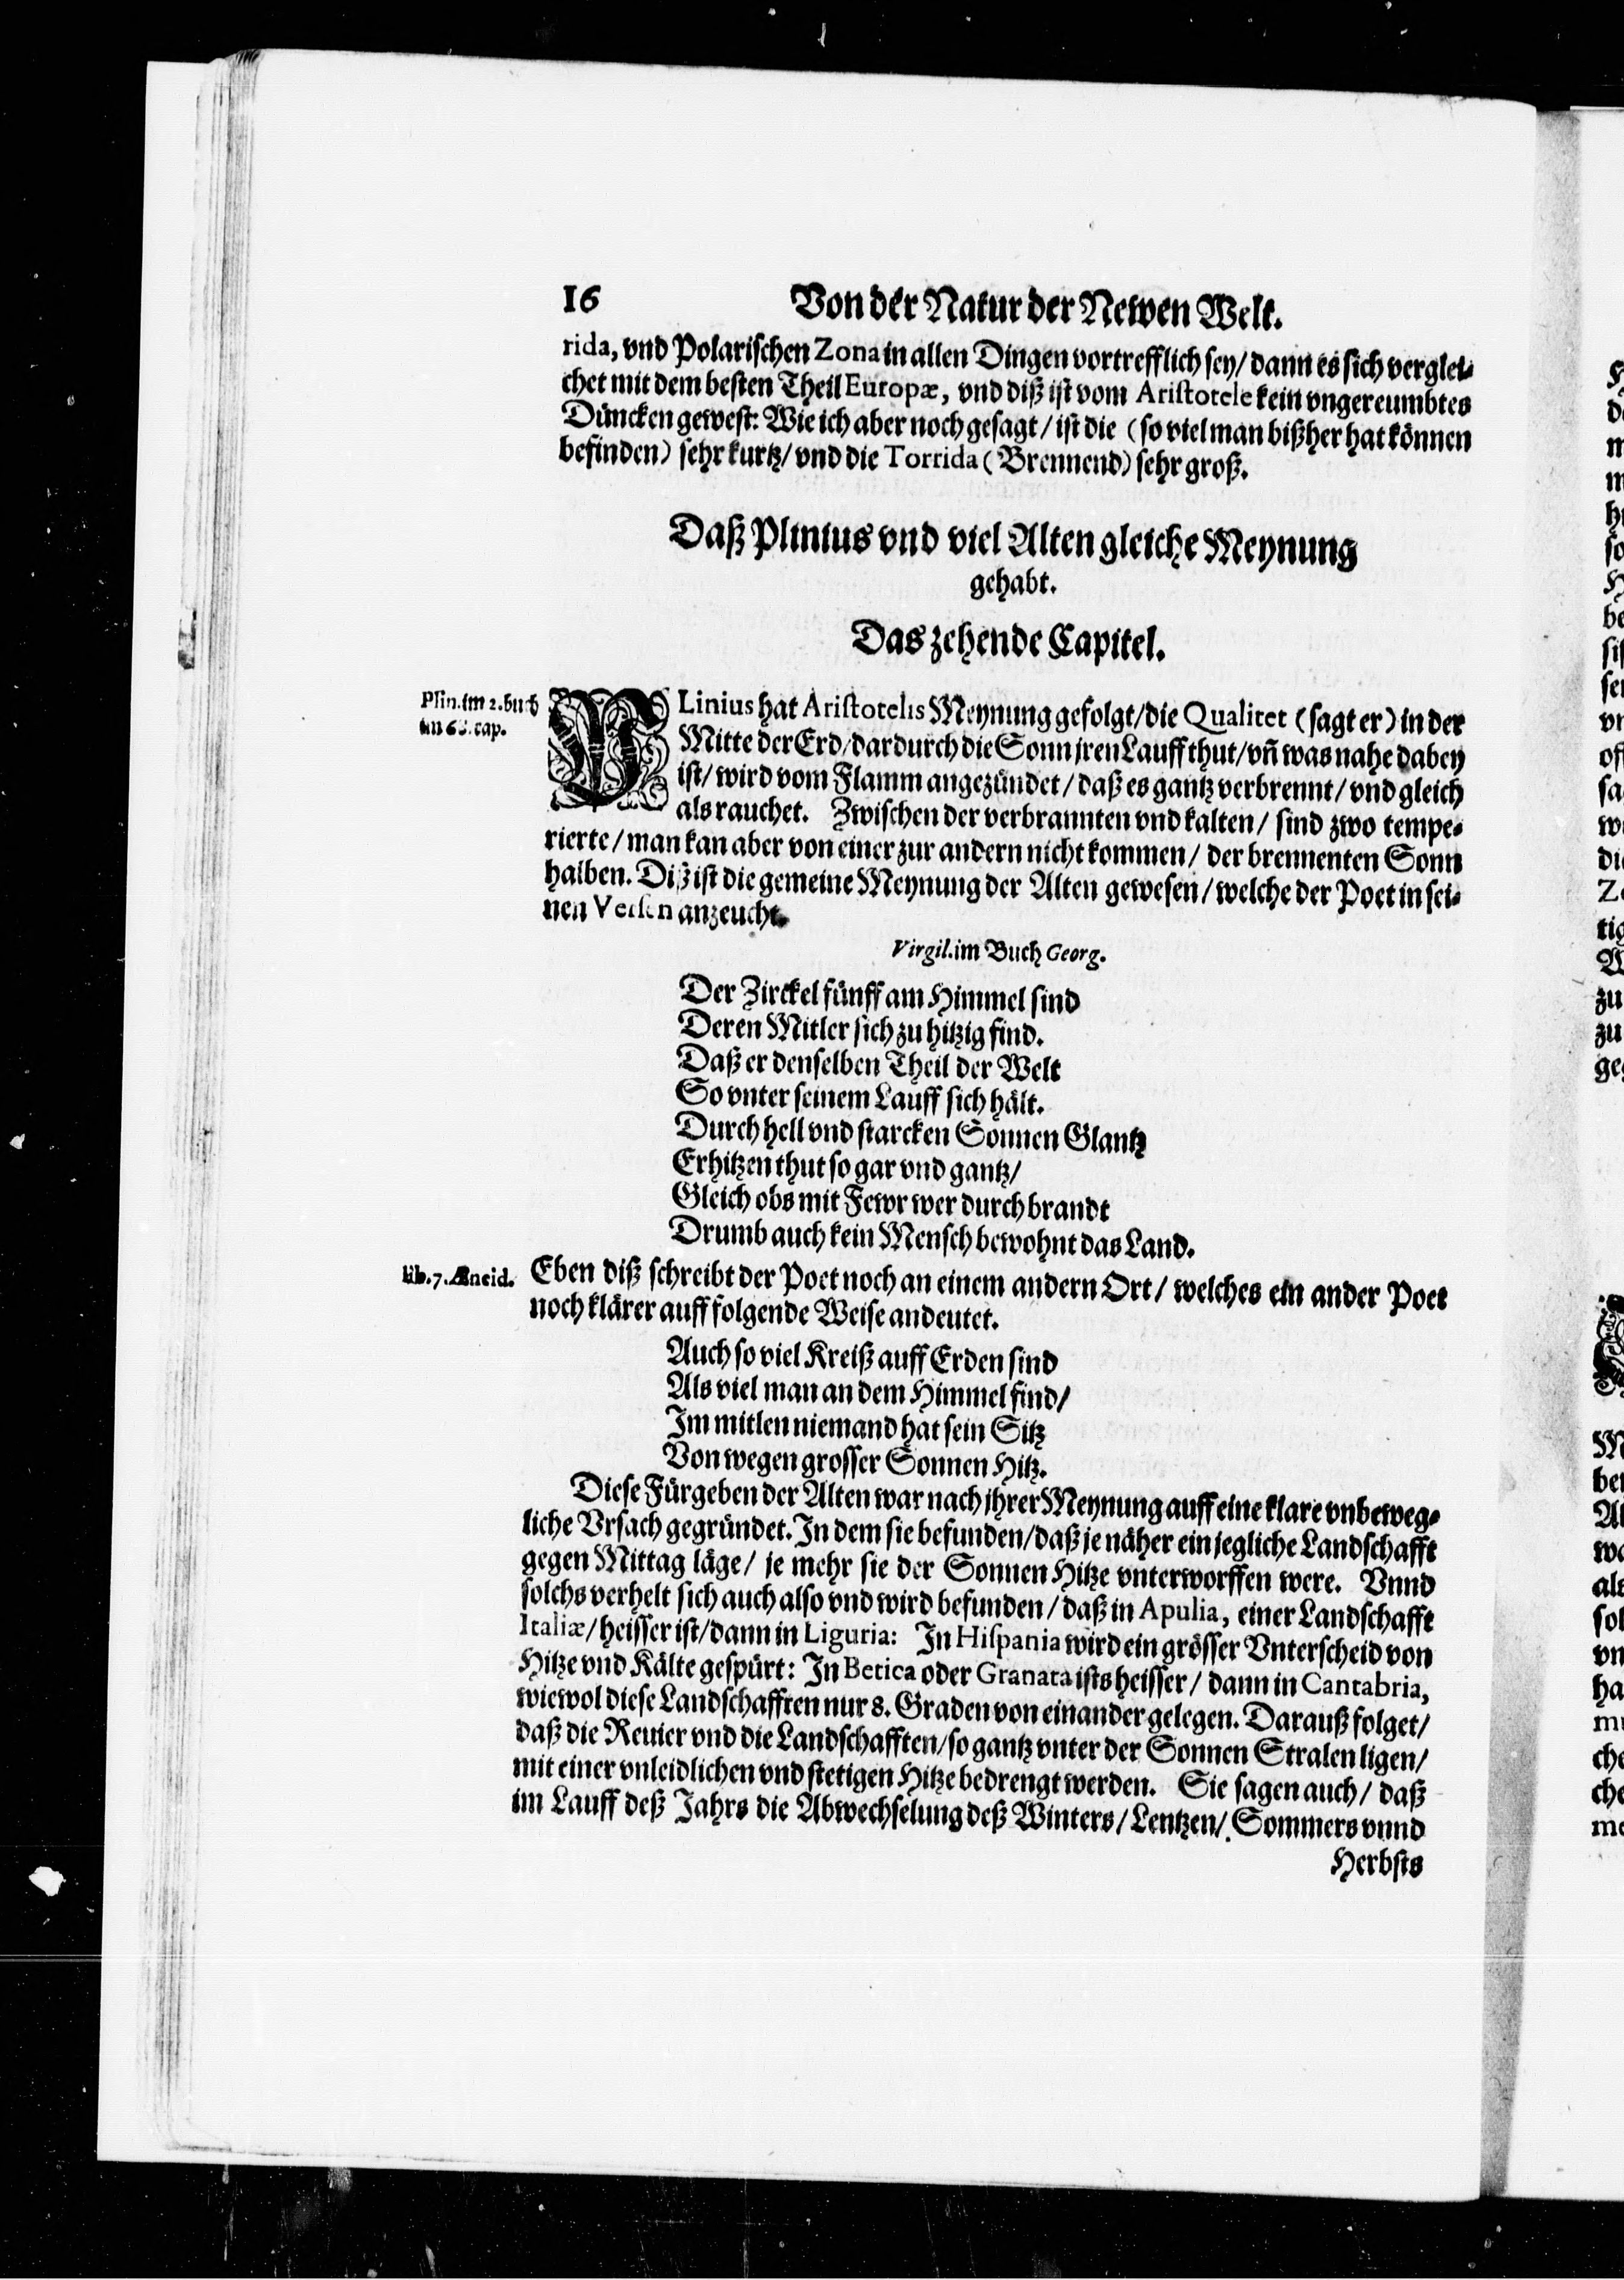 16 Von der Natur der Newen Welt.
rida, vnd Polarischen Zona in allen Dingen vortrefflich sey/ dann es sich verglei-
chet mit dem besten Theil Europæ, vnd diß ist vom Aristotele kein vngereumbtes
Düncken gewest: Wie ich aber noch gesagt/ ist die (so viel man bißher hat können
befinden) sehr kurtz/ vnd die Torrida (Brennend) sehr groß.
Daß Plinius vnd viel Alten gleiche Meynung
gehabt.
Das zehende Capitel.
Plin. im 2. buch
im 68. cap.
PLinius hat Aristotelis Meynung gefolgt/ die Qualitet (sagt er) in der
Mitte der Erd/ dardurch die Sonn jren Lauff thut/ vñ was nahe dabey
ist/ wird vom Flamm angezündet/ daß es gantz verbrennt/ vnd gleich
als rauchet. Zwischen der verbrannten vnd kalten/ sind zwo tempe-
rierte/ man kan aber von einer zur andern nicht kommen/ der brennenten Sonn
halben. Diß ist die gemeine Meynung der Alten gewesen/ welche der Poet in sei-
nen Versen anzeucht.
Virgil. im Buch Georg.
Der Zirckel fünff am Himmel sind
Deren Mitler sich zu hitzig find.
Daß er denselben Theil der Welt
So vnter seinem Lauff sich hält.
Durch hell vnd starcken Sonnen Glantz
Erhitzen thut so gar vnd gantz/
Gleich obs mit Fewr wer durch brandt
Drumb auch kein Mensch bewohnt das Land.
lib. 7. Æneid.
Eben diß schreibt der Poet noch an einem andern Ort/ welches ein ander Poet
noch klärer auff folgende Weise andeutet.
Auch so viel Kreiß auff Erden sind
Als viel man an dem Himmel find/
Im mitlen niemand hat sein Sitz
Von wegen grosser Sonnen Hitz.
Diese Fürgeben der Alten war nach jhrer Meynung auff eine klare vnbeweg-
liche Vrsach gegründet. In dem sie befunden/ daß je näher ein jegliche Landschafft
gegen Mittag läge/ je mehr sie der Sonnen Hitze vnterworffen were. Vnnd
solchs verhelt sich auch also vnd wird befunden/ daß in Apulia, einer Landschafft
Italiæ/ heisser ist/ dann in Liguria: In Hispania wird ein grösser Vnterscheid von
Hitze vnd Kälte gespürt: In Betica oder Granata ists heisser/ dann in Cantabria,
wiewol diese Landschafften nur 8. Graden von einander gelegen. Darauß folget/
daß die Reuier vnd die Landschafften/ so gantz vnter der Sonnen Stralen ligen/
mit einer vnleidlichen vnd stetigen Hitze bedrengt werden. Sie sagen auch/ daß
im Lauff deß Jahrs die Abwechselung deß Winters/ Lentzen/ Sommers vnnd
Herbsts